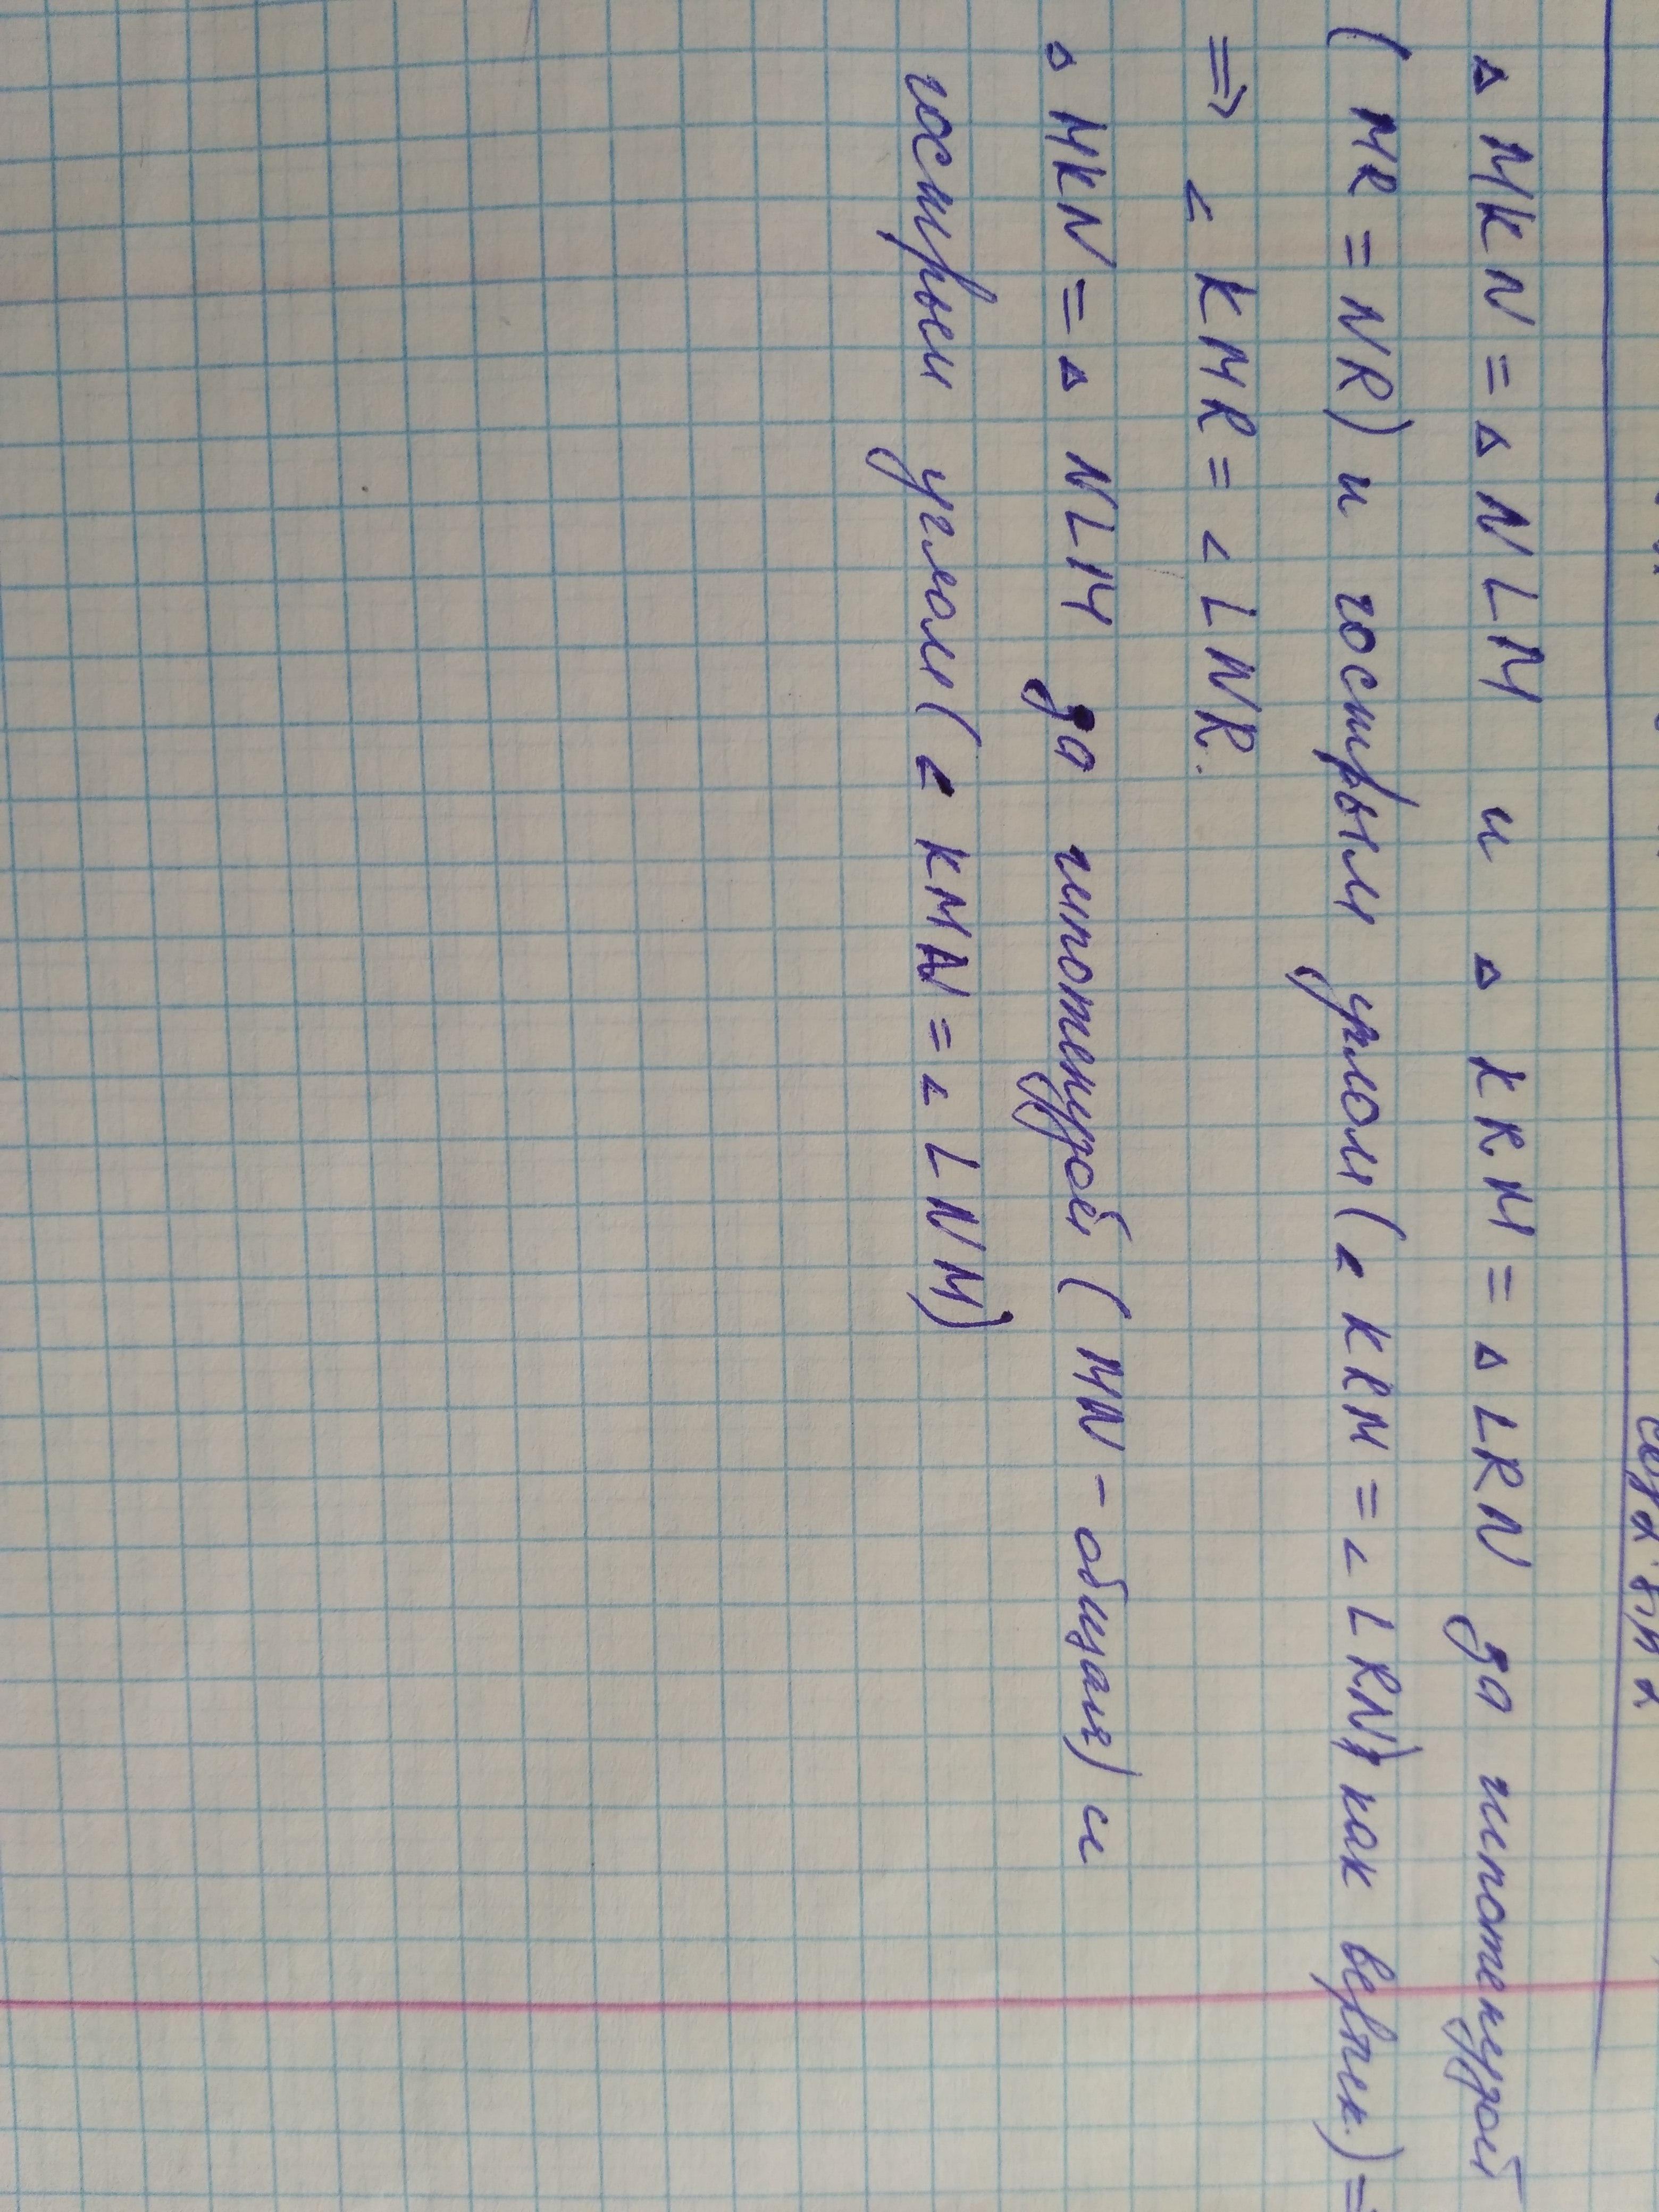 △ MKN = △ NLM и △ KRM = △ LRN да гипотенузой
(MR = NR) и гострым углом (∠ KRM = ∠ LRN) как вертик.) =
=> ∠ KMR = ∠ LNR.
△ MKN = △ NLM да гипотенузой (MN - общая) и
гострым углом (∠ KMN = ∠ LNM)